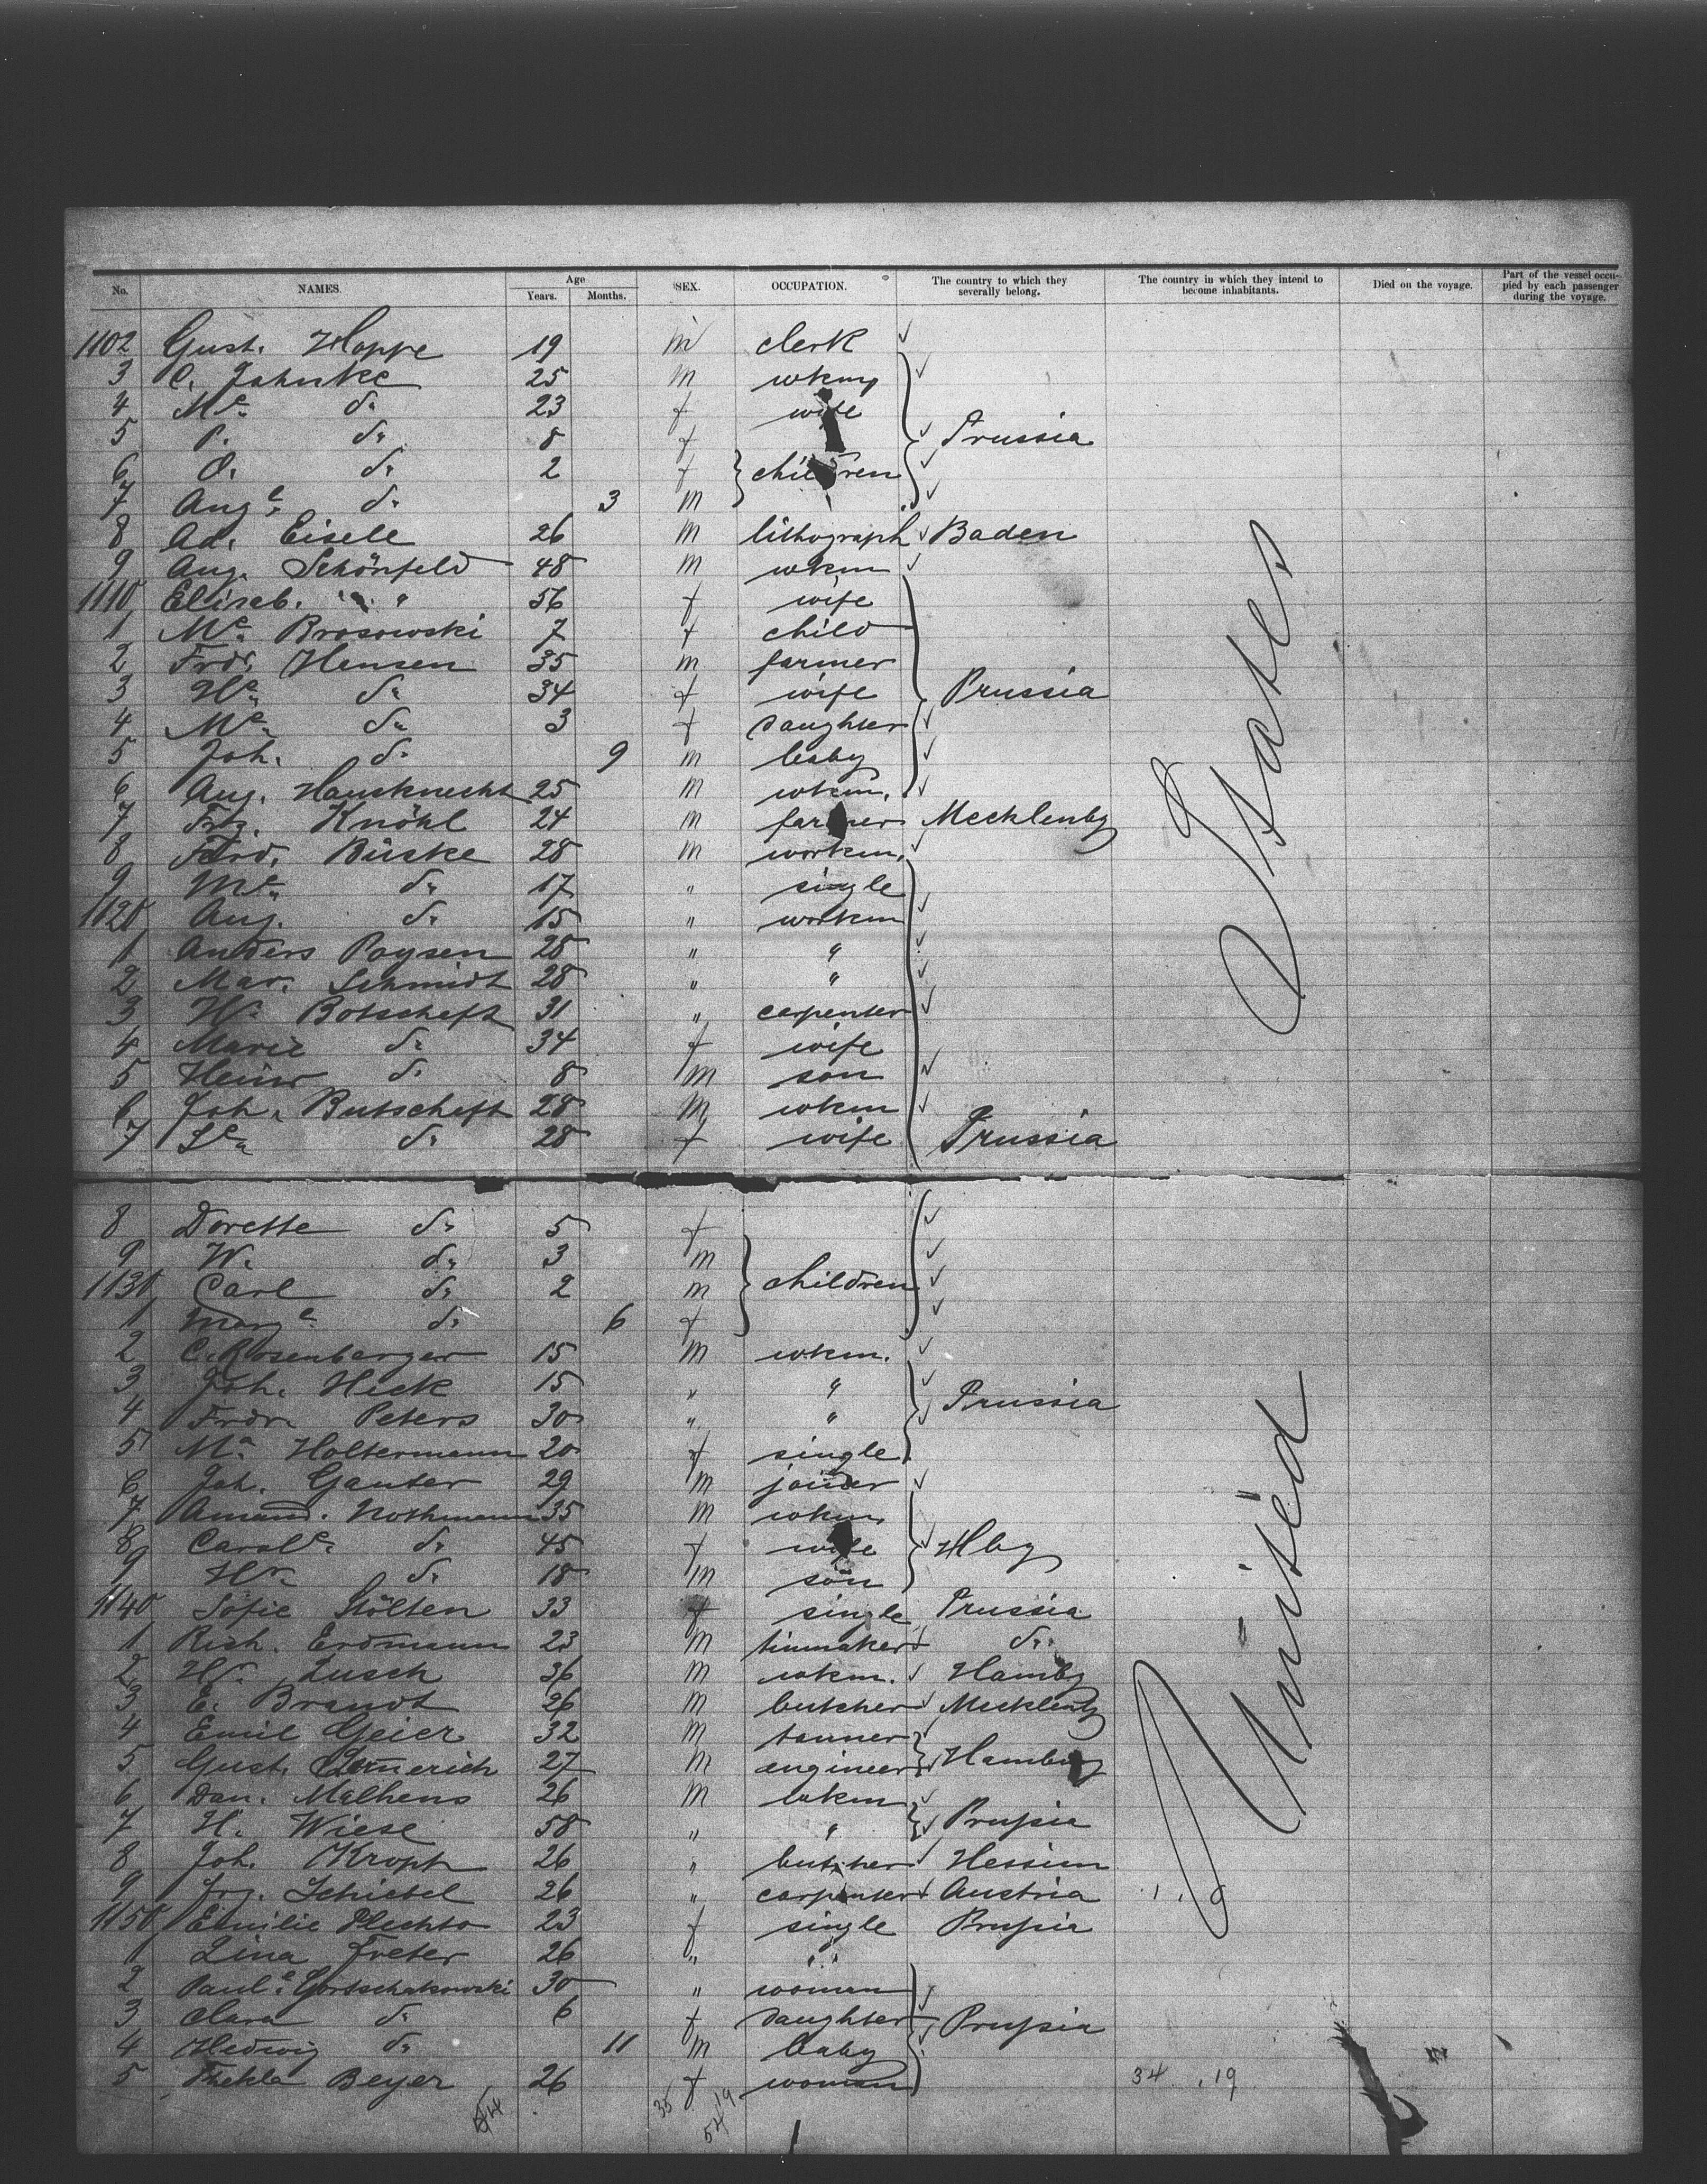 No. NAMES. Age Years. Months. SEX. OCCUPATION. The country to which they severally belong. The country in which they intend to become inhabitants. Died on the voyage. Part of the vessel occupied by each passenger during the voyage.
1102 Gust. Hoppe 19 m clerk
3 C. Jahnke 25 m wkm
4 Me. do 23 f wife
5 P. do 8 f Prussia
6 O. do 2 f children
7 Auge. do 3 m
8 Ad. Eisele 26 m lithograph Baden
9 Aug. Schönfeld 48 m wkm
1110 Eliseb. " 56 f wife
1 Me. Brosowski 7 f child
2 Frdr. Hensen 35 m farmer
3 He. do 34 f wife Prussia
4 Me. do 3 f daughter
5 Joh. do 9 m baby
6 Aug. Hausknecht 25 m wkm.
7 Frz. Knöhl 24 m farmer Mecklenbg
8 Ferd. Büske 28 m workm.
9 Me. do 17 " single
1120 Aug. do 15 " workm
1 Anders Paysen 28 " "
2 Mar. Schmidt 28 " "
3 W. Botscheft 31 " carpenter
4 Marie do 34 f wife
5 Heinr do 8 m son
6 Joh. Butscheft 28 m wkm
7 Se. do 28 f wife Prussia
8 Dorette do 5 f
9 W. do 3 m
1130 Carl do 2 m children
1 Marge. do 6 f
2 C. Rosenbarger 15 m wkm.
3 Joh. Heck 15 " "
4 Frdr Peters 30 " " Prussia
5 Ma. Holtermann 20 f single
6 Joh. Ganter 29 m joiner
7 Amand. Nothmann 35 m wkm
8 Carole. do 45 f wife Hbg
9 Hr. do 18 m son
1140 Sofie Stölten 33 f single Prussia
1 Rich. Erdmann 23 m tinmaker do
2 Hr. Lusch 36 m wkm. Hambg
3 E. Brandt 26 m butcher Mecklenbg
4 Emil Geier 32 m tanner
5 Gust. 27 m engineer Hamburg
6 Dan. Malhens 26 m wkm
7 H. Wiese 58 " " Prussia
8 Joh. Kropp 26 " butcher Hessen
9 Jrg. Schiebel 26 " carpenter Austria
1150 Emilie 23 f single Prussia
1 Lina Freter 26 " "
2 Paule. Gortschakowski 30 " woman
3 Clara do 6 f daughter Prussia
4 Hedwig do 11 m baby
5 Thekla Beyer 26 f woman
United States
34 . 19
54 19